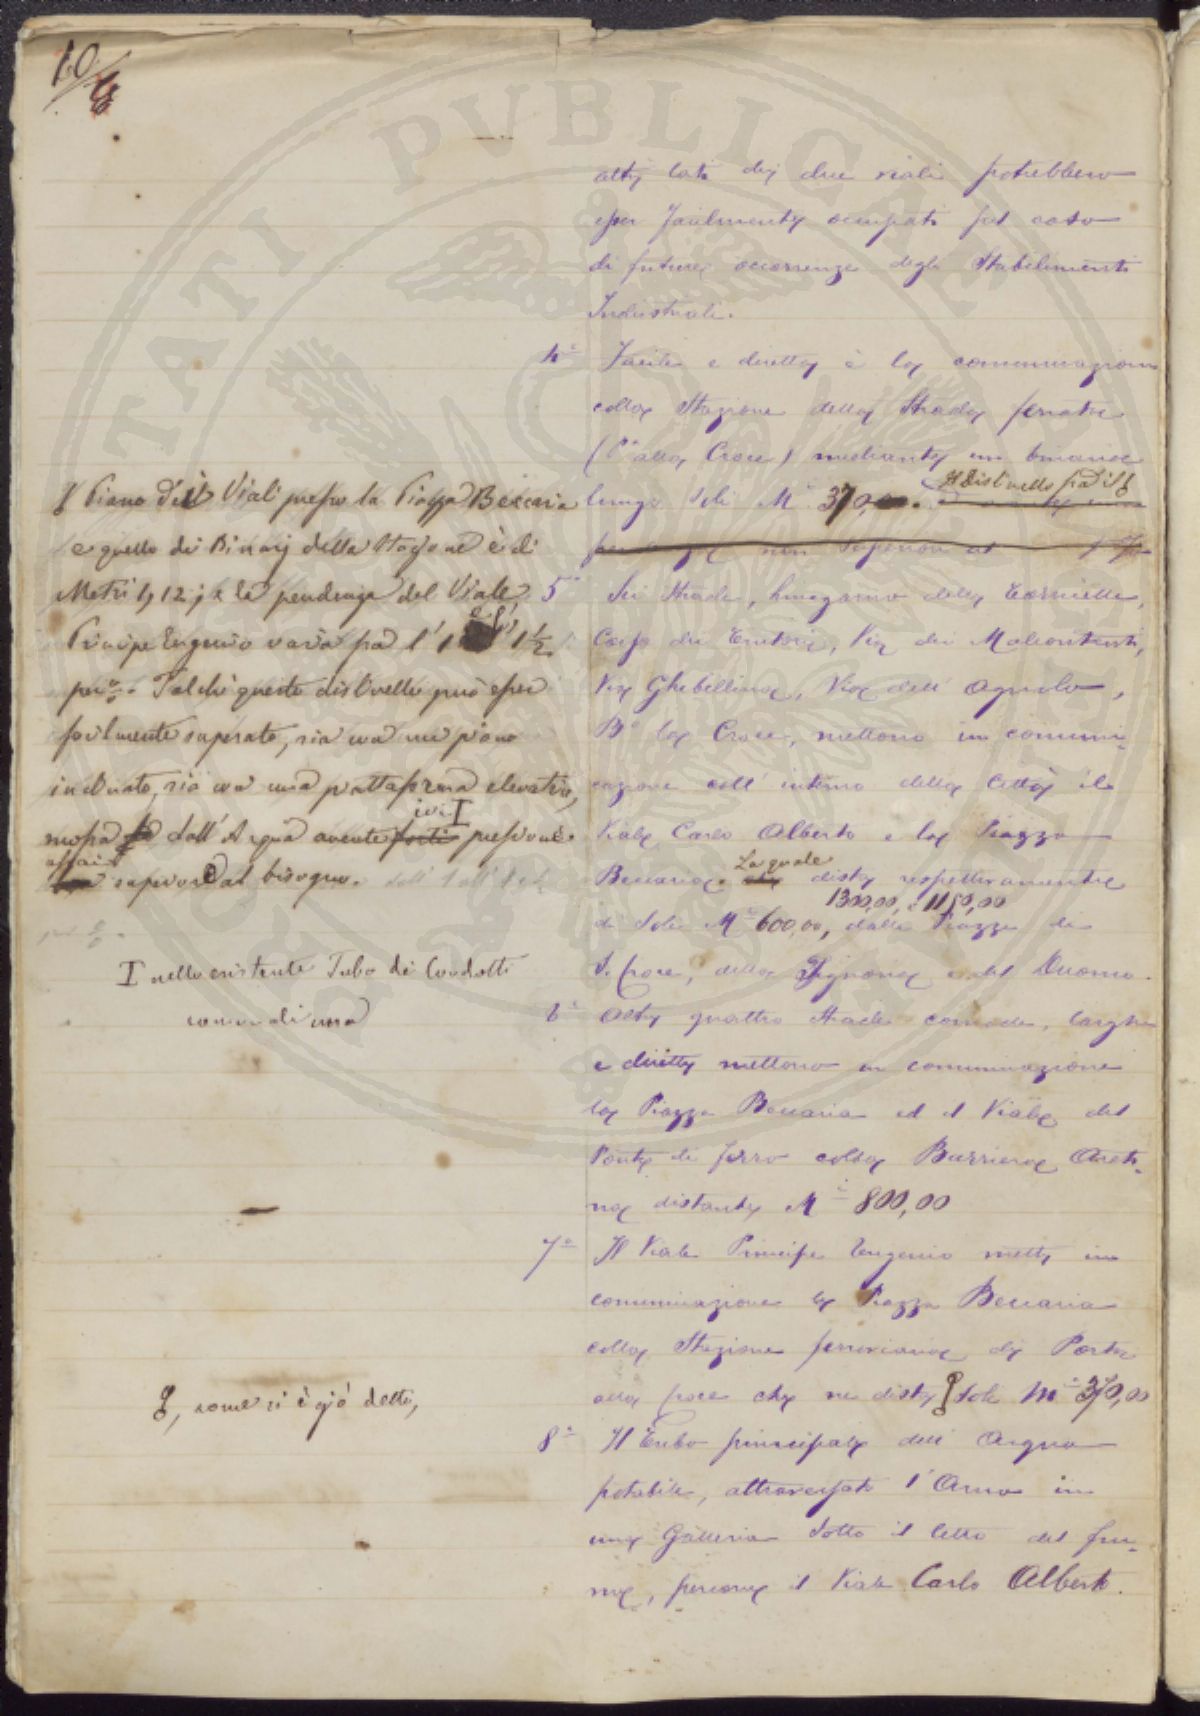 10/8
altri lati dei due viali potrebbero
esser facilmente occupati pel caso
di future occorrenze degli Stabilimenti
Industriali.
4° Facile e diretta è la comunicazione
colla Stazione della Strada ferrata
(Pa alla Croce) mediante un binario
lungo soli Mi 370,00. Il Dislivello fra il
non superiore al
5° Sei Strade, Lungarno della Torricella,
Corso dei Tintori, Via dei Malcontenti,
Via Ghibellina, Via dell' Agnolo,
Bo La Croce, mettono in comuni-
cazione coll' interno della Città il
Viale Carlo Alberto e la Piazza
Beccaria. La quale dista respettivamente
1300,00, e 1150,00
di Soli Mi 600,00, dalle Piazze di
S. Croce, della Signoria e del Duomo.
6° Altre quattro strade comode, larghe
e dirette mettono in comunicazione
la Piazza Beccaria ed il Viale del
Ponte di ferro colla Barriera Areti-
na distante Mi 800,00
7° Il Viale Principe Eugenio mette in
comunicazione la Piazza Beccaria
colla Stazione ferroviaria di Porta
alla Croce che ne dista Soli Mi 370,00
8° Il Tubo principale dell' Acqua
potabile, attraversato l' Arno in
una Galleria Sotto il letto del fiu-
me, percorre il Viale Carlo Alberto.
Piano dei Viali presso la Piazza Beccaria
e quello dei Binarj della Stazione è di
Metri 1,12; e la pendenza del Viale
Principe Eugenio varia fra l' 1 e l' 1 1/2
per %. Talchè questo dislivello può esser
facilmente superato, sia con un piano
inclinato, sia con una piattaforma elevatrice,
mossa dall' Acqua avente ivi I pressione
assai superiore al bisogno.
I nello esistente Tubo dei Condotti
comunali una
, come si è già detto,